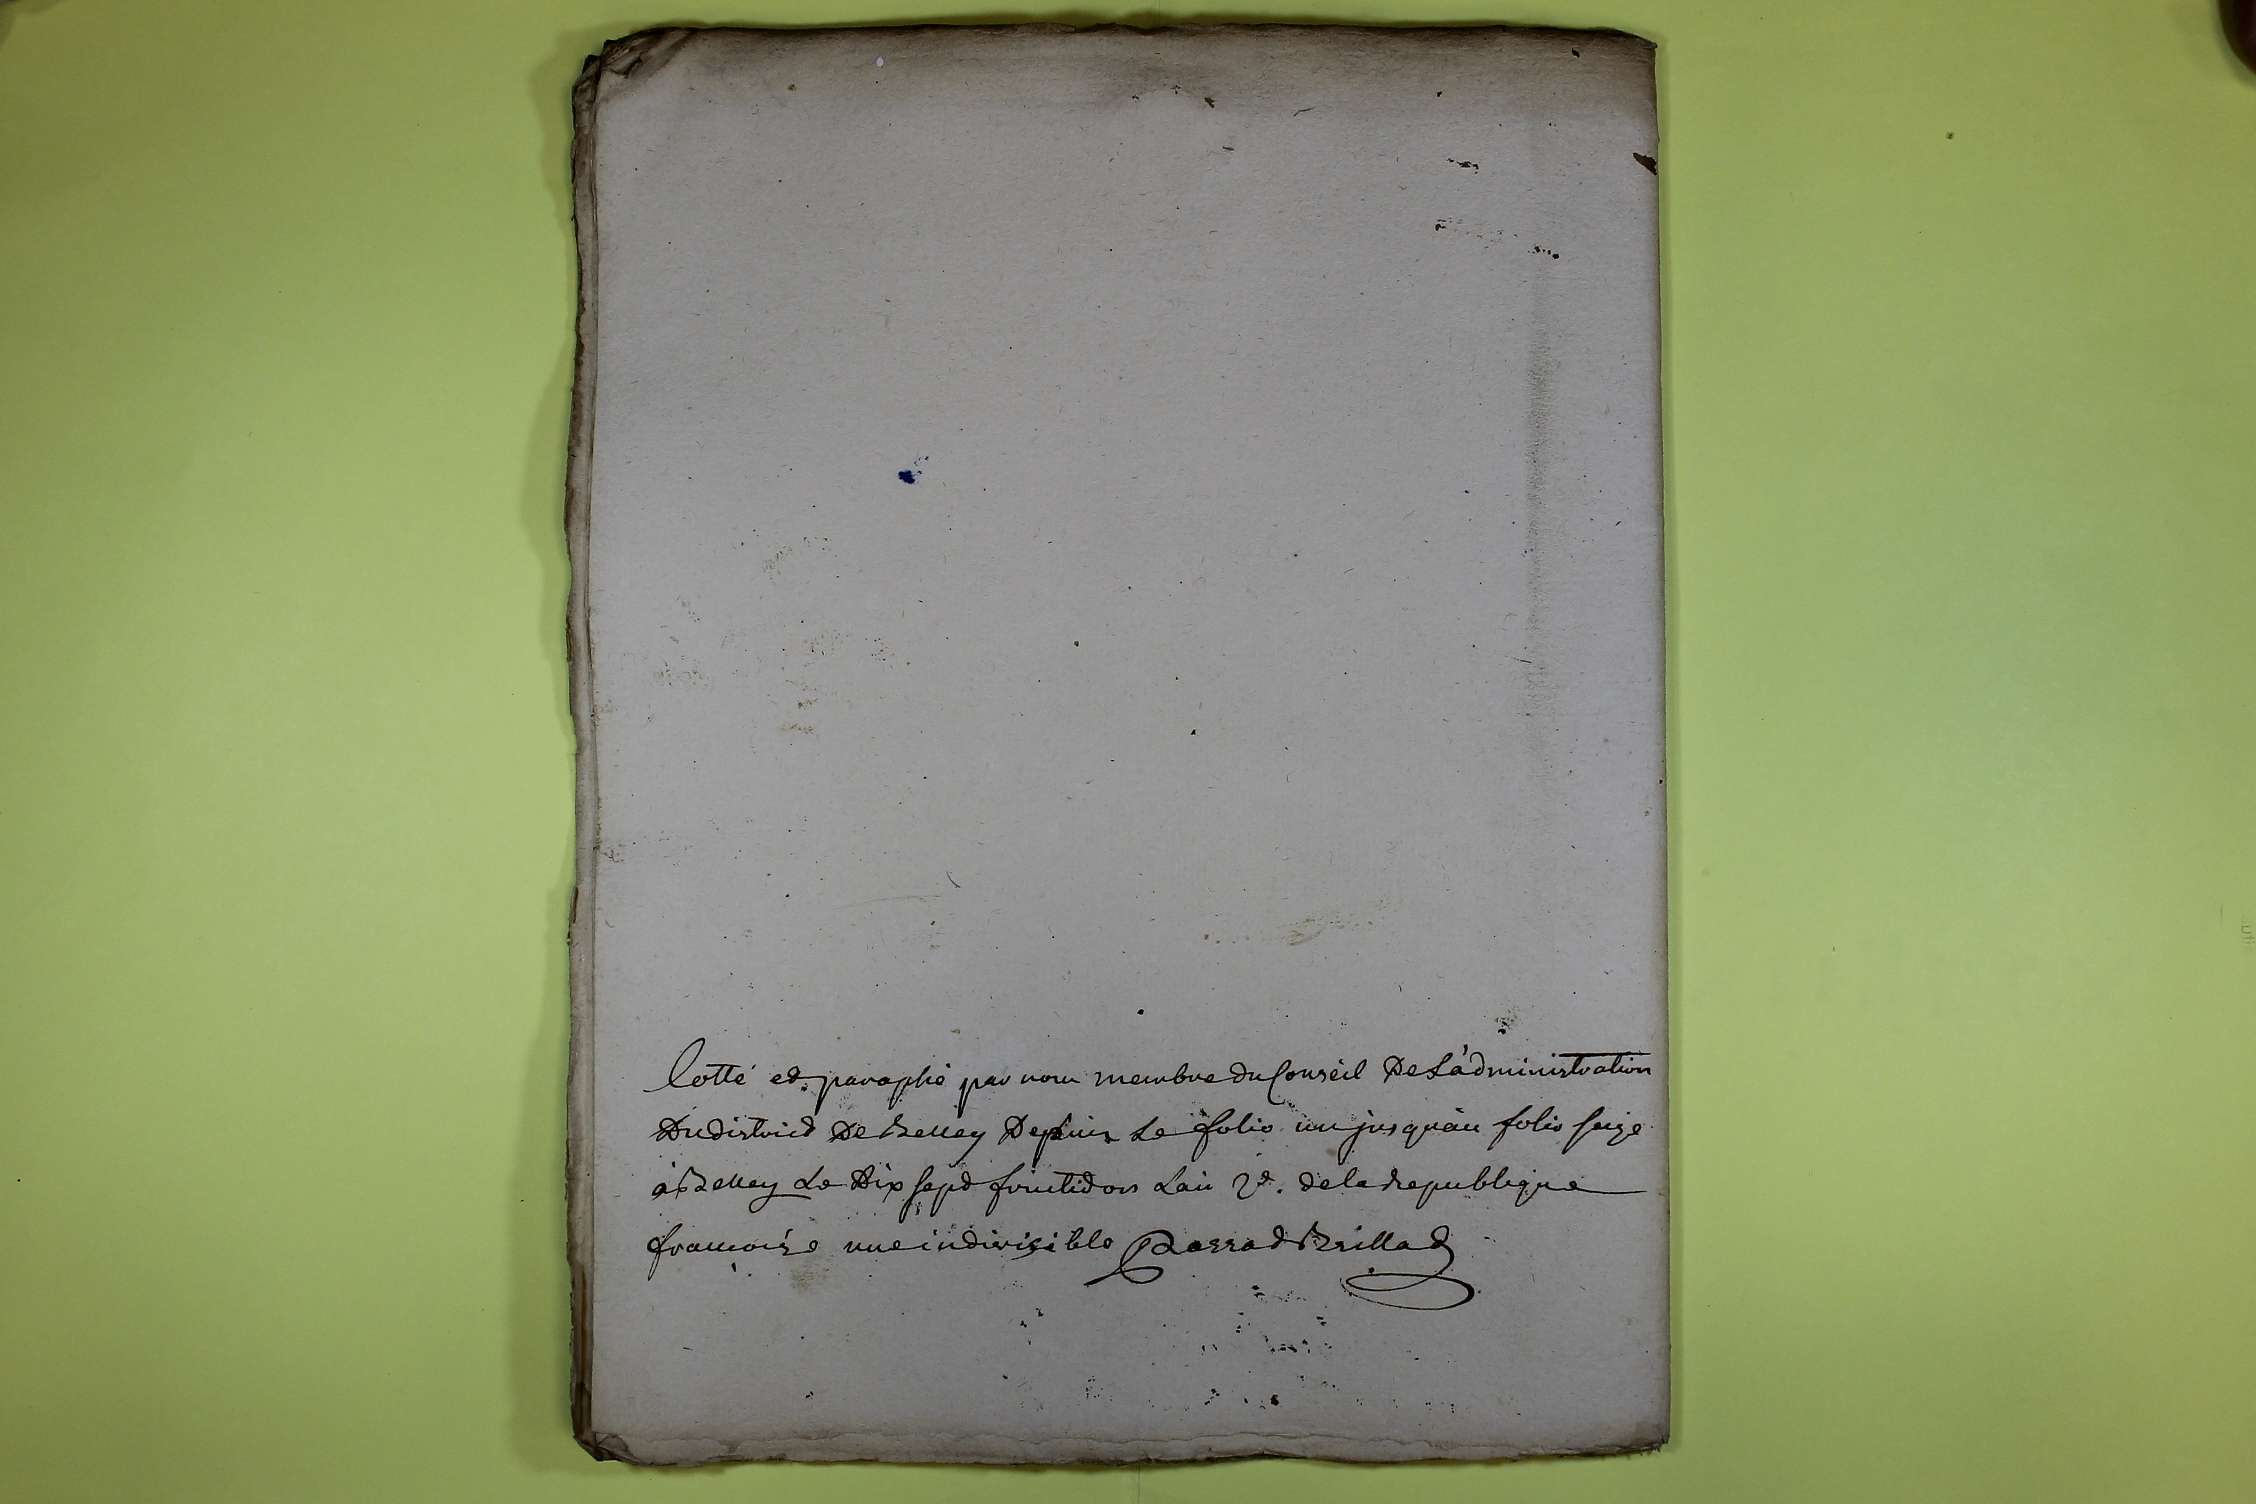 Cotté et paraphé par nous membre du Conseil De L'administration
Du district De Belley Depuis Le folio un jusqu'au folio seize
à Belley Le Dix sept fructidor L'an 2d. de la republique
francoise une indivisible